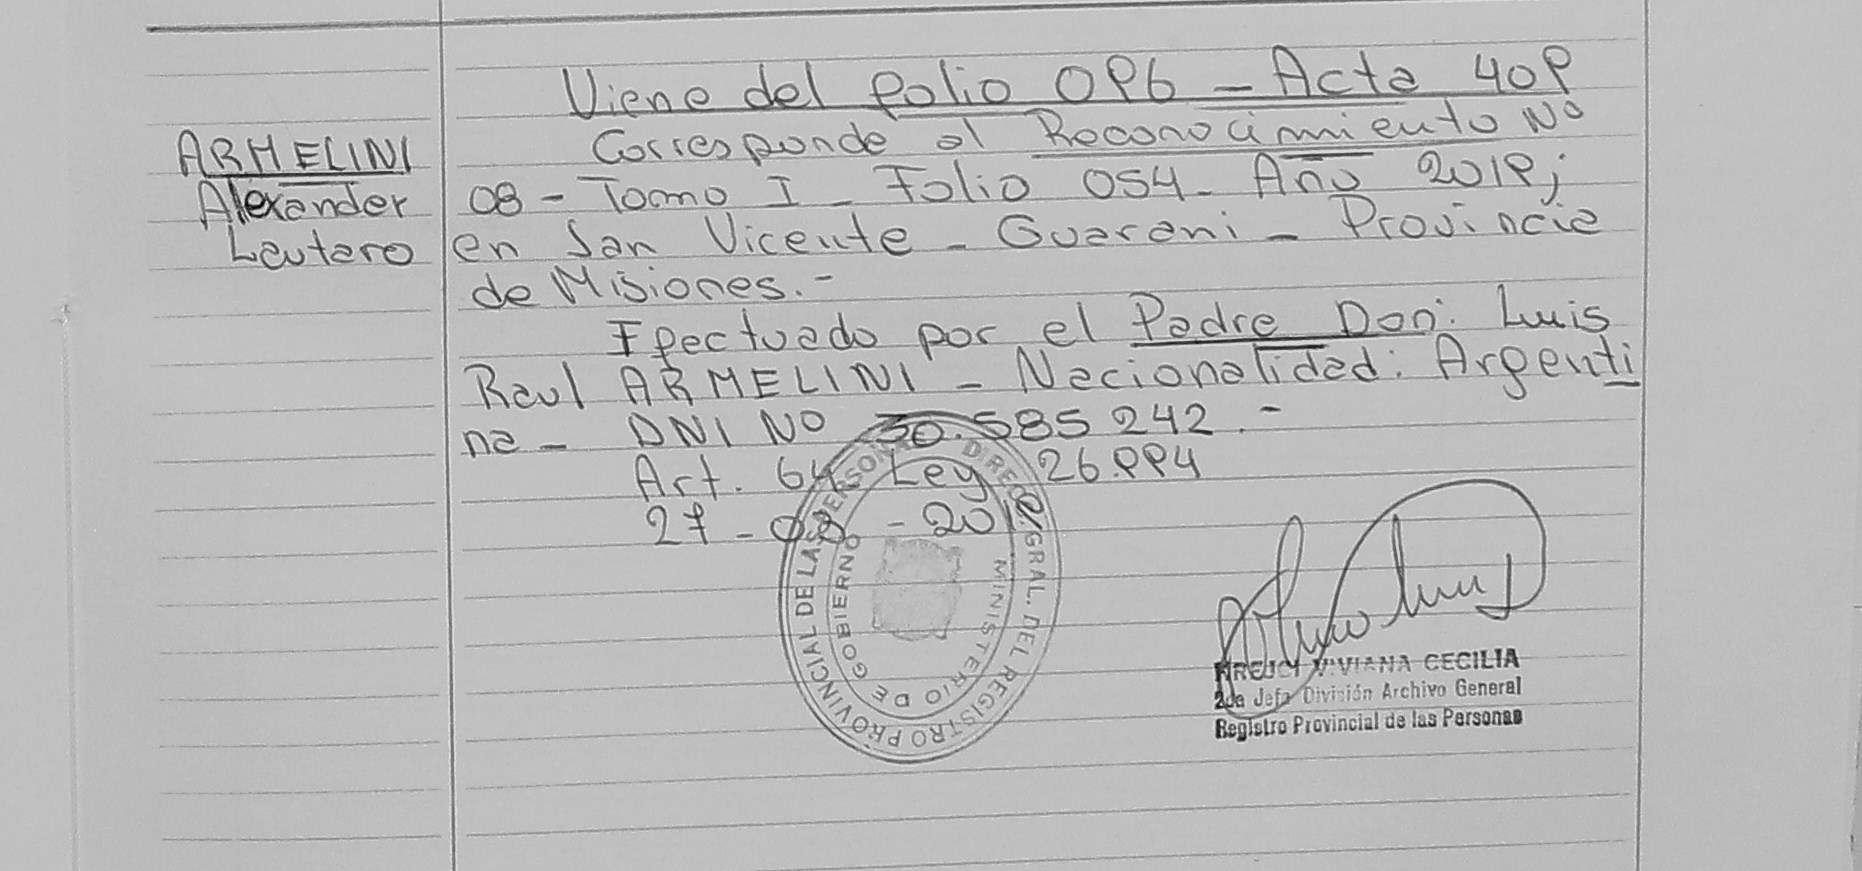 Viene del folio 096 - Acta 409
Corresponde al Reconocimiento Nº
ARMELINI
Alexander
Lautaro
08 - Tomo I - Folio 054 - Año 2019;
en San Vicente - Guarani - Provincia
de Misiones.-
Efectuado por el Padre Don: Luis
Raul ARMELINI - Nacionalidad: Argenti
na - DNI Nº 30.585242.-
Art. 64 Ley 26.994
27 - 08 - 2019
DIREC. GRAL. DEL REGISTRO PROVINCIAL DE LAS PERSONAS
MINISTERIO DE GOBIERNO
VIVIANA CECILIA
2da Jefa División Archivo General
Registro Provincial de las Personas